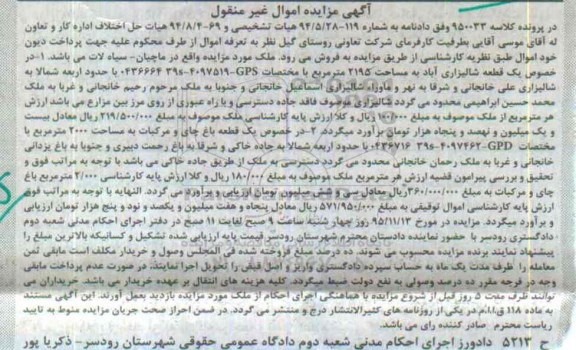 آگهی مزایده اموال غیر منقول
در پرونده کلاسه 950033 وفق دادنامه به شماره 119-94/5/28 هیات تشخیصی و 69-94/8/4 هیات حل اختلاف اداره کار و تعاون
له آقای موسی آقایی بطرفیت کارفرمای شرکت تعاونی روستای گیل نظر به تعرفه اموال از طرف محکوم علیه جهت پرداخت دیون
خود اموال طبق نظریه کارشناسی از طریق مزایده به فروش می رود. ملک مورد مزایده واقع در ماچیان- سیاه لات می باشد. 1-در
خصوص یک قطعه شالیزاری آباد به مساحت 2195 مترمربع با مختصات GPS-4097519-39s 0436664 با حدود اربعه شمالا به
شالیزاری علی خانجانی و شرقا به نهر و ماوراء شالیزاری اسماعیل خانجانی و جنوبا به ملک مرحوم رحیم خانجانی و غربا به ملک
محمد حسین ابراهیمی محدود می گردد شالیزاری موصوف فاقد جاده دسترسی و یا راه عبوری از روی مرز بین مزارع می باشد ارزش
هر مترمربع از ملک موصوف به مبلغ 100/000 ریال و کلا ارزش پایه کارشناسی ملک موصوف به مبلغ 219/500/000 ریال معادل بیست
و یک میلیون و نهصد و پنجاه هزار تومان برآورد میگردد. 2-در خصوص یک قطعه باغ چای و مرکبات به مساحت 2000 مترمربع با
مختصات GPD-4097462-39s 0436716 با حدود اربعه شمالا به جاده خاکی و شرقا به باغ رحمت دبیری و جنوبا به باغ یزدانی
خانجانی و غربا به ملک رحمان خانجانی محدود می گردد دسترسی به ملک از طریق جاده خاکی می باشد با توجه به مراتب فوق و
تحقیق و بررسی پیرامون قضیه ارزش هر مترمربع ملک موصوف به مبلغ 180/000 ریال و کلا ارزش پایه کارشناسی 2/000 مترمربع باغ
چای و مرکبات به مبلغ 360/000/000 ریال معادل سی و شش میلیون تومان ارزیابی و برآورد می گردد. النهایه با توجه به مراتب فوق
ارزش پایه کارشناسی اموال توقیفی به مبلغ 571/950/000 ریال معادل پنجاه و هفت میلیون و یکصد و نود و پنج هزار تومان ارزیابی
و برآورد میگردد. مزایده در مورخ 95/11/13 روز چهار شنبه ساعت 9 صبح لغایت 11 صبح در دفتر اجرای احکام مدنی شعبه دوم
دادگستری رودسر با حضور نماینده دادستان محترم شهرستان رودسر قیمت پایه ارزیابی شده تشکیل و کسانیکه بالاترین مبلغ را
پیشنهاد نمایند برنده مزایده محسوب می شوند. ده درصد مبلغ فروخته شده فی المجلس وصول و خریدار مکلف است مابقی ثمن
معامله را ظرف مدت یک ماه به حساب سپرده دادگستری واریز و اصل فیش را تحویل اجرا نمایند. در صورت عدم پرداخت مابقی
وجه در فرجه مقرر ده درصد وصولی به نفع دولت ضبط میگردد. کلیه هزینه های انتقال بر عهده خریدار می باشد. خریداران می
توانند ظرف مدت 5 روز قبل از شروع مزایده با هماهنگی اجرای احکام از ملک مورد مزایده بازدید بعمل آورند. این آگهی مستند
به ماده 118 ق.ا.م در یکی از روزنامه های کثیرالانتشار درج و منتشر می گردد. در ضمن احراز صحت جریان مزایده منوط به تایید
ریاست محترم صادر کننده رای می باشد.
ح 5213 دادورز اجرای احکام مدنی شعبه دوم دادگاه عمومی حقوقی شهرستان رودسر- ذکریا پور